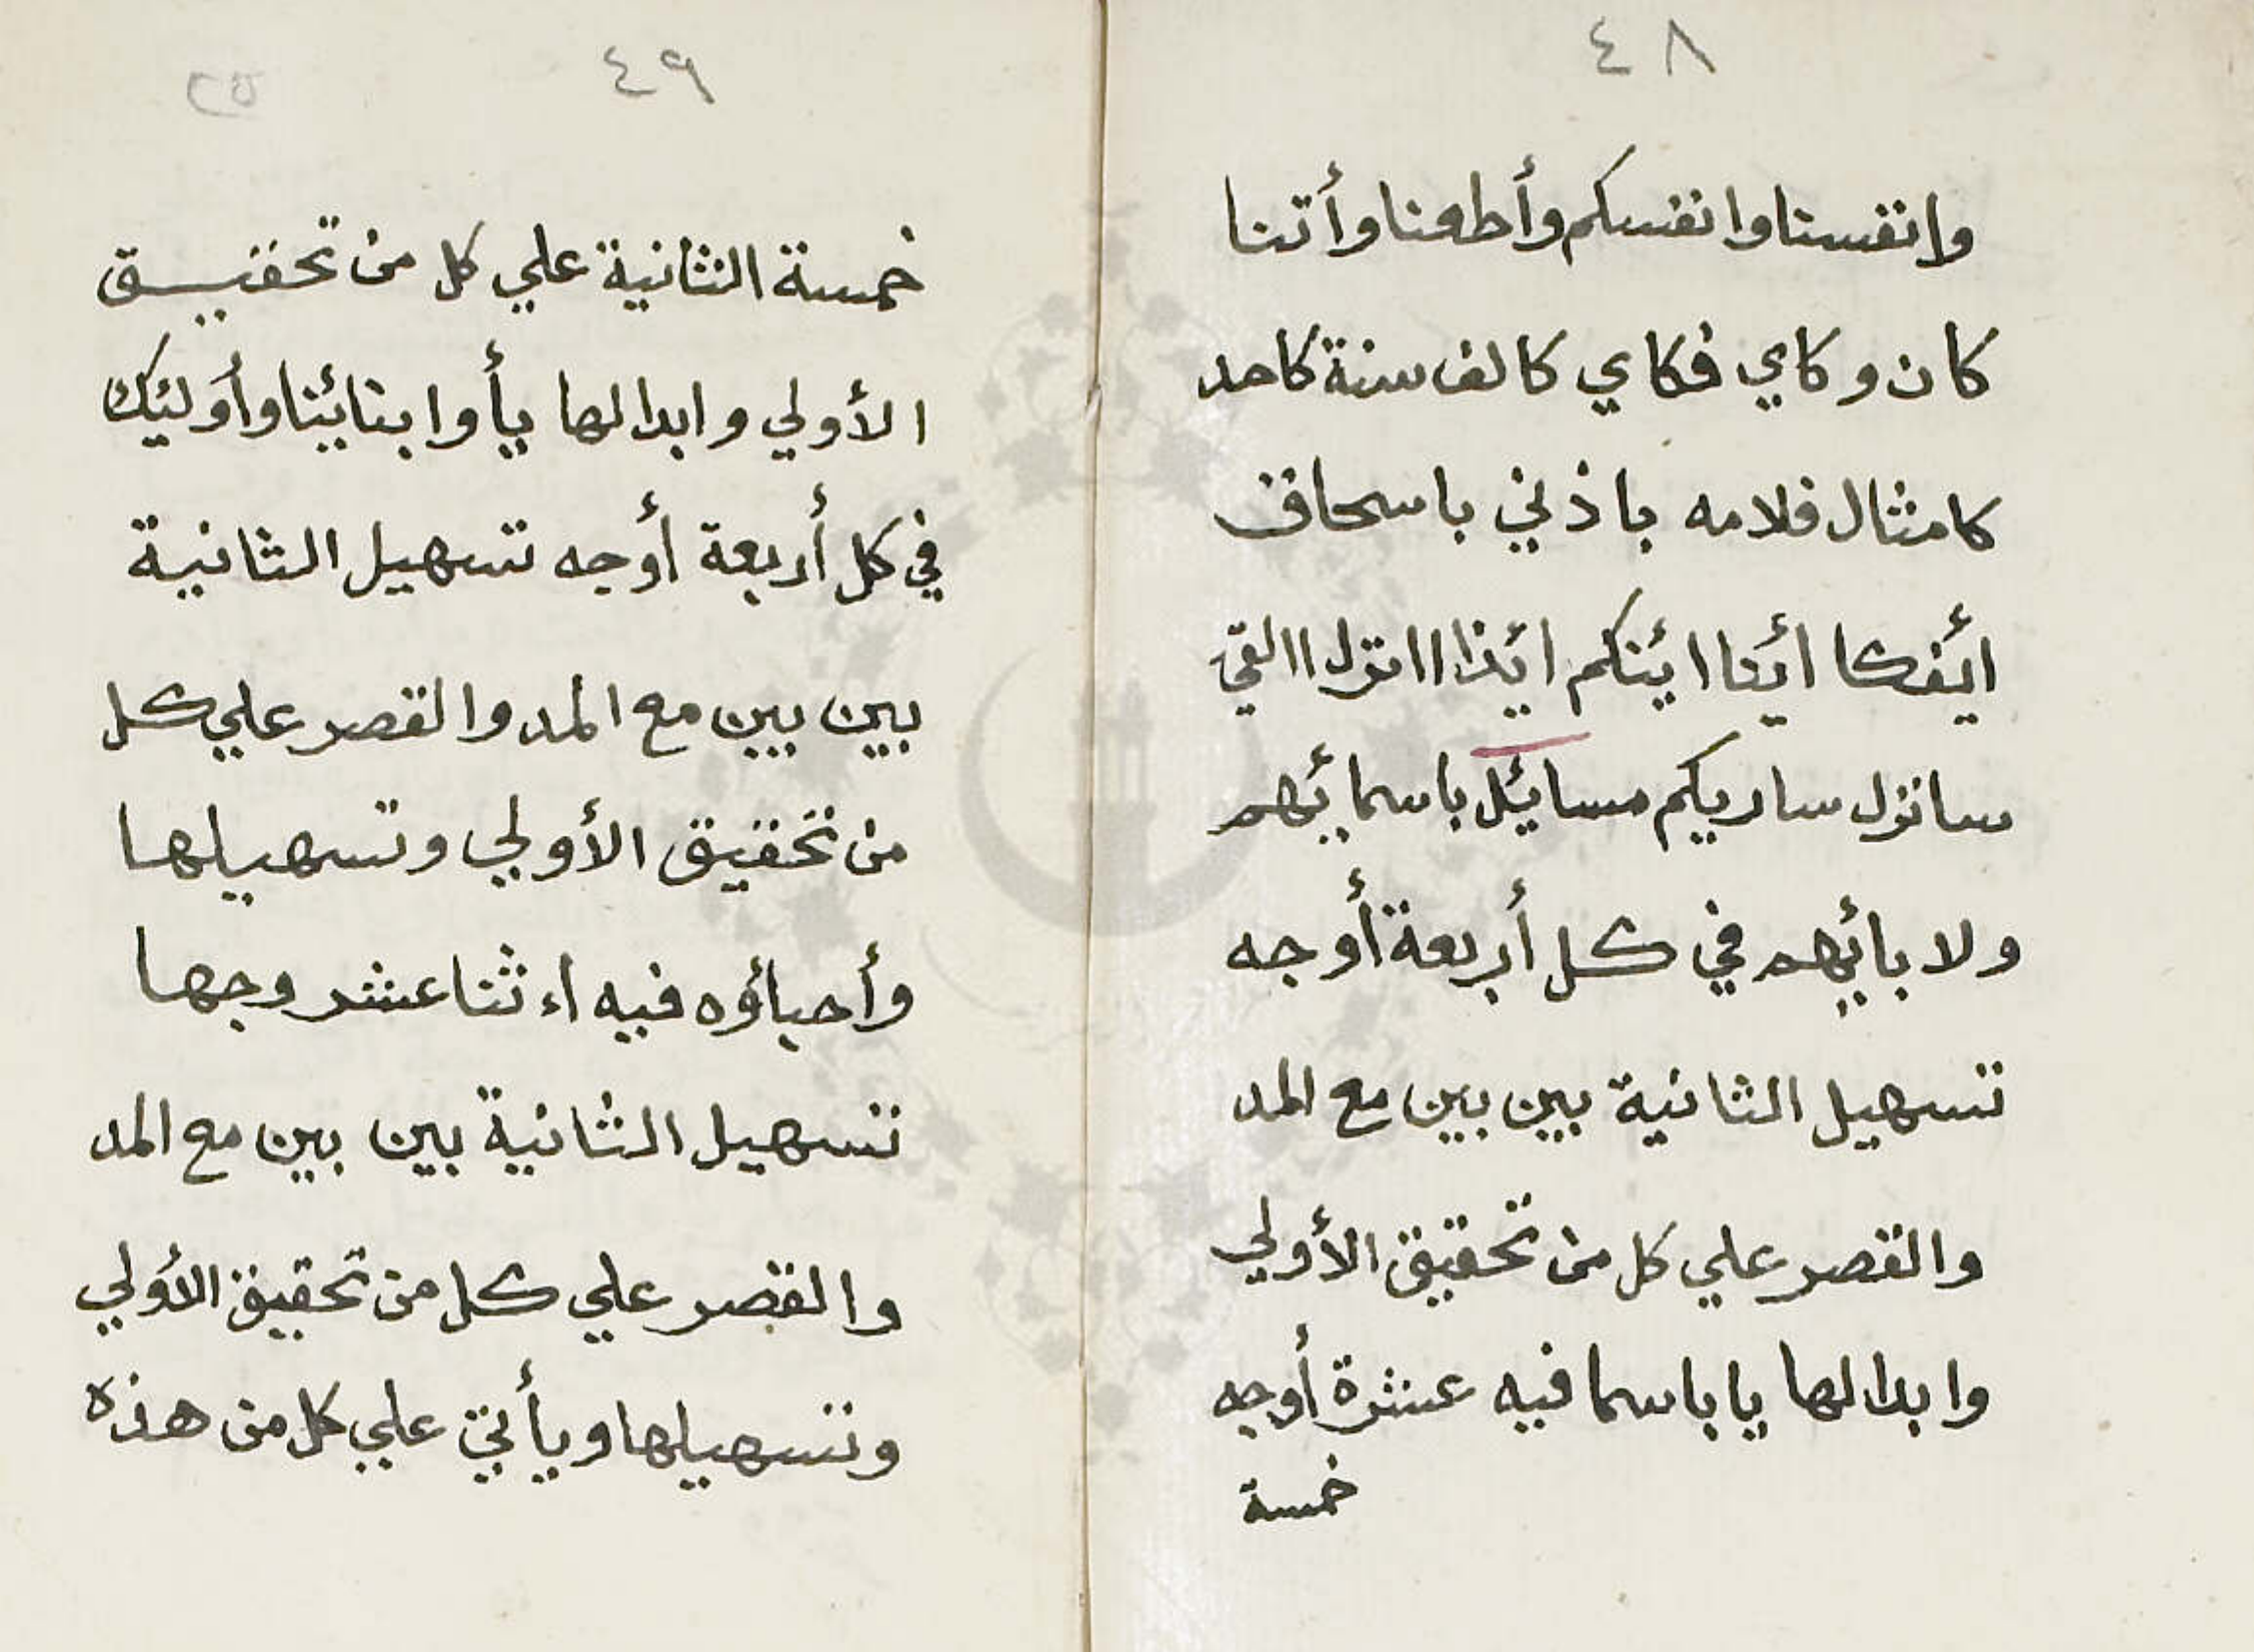 ٤٨
وانفسنا وانفسكم وأطعنا وأتنا
كان وكاي فكاي كالف سنة كاحد
كامثال فلامه باذني باسحاق
أئفكا ائنا ائنكم ائذا اانزل االقي
سانزل ساريكم مسائل باسمائهم
ولابائهم في كل أربعة أوجه
تسهيل الثانية بين بين مع المد
والقصر علي كل من تحقيق الأولي
وابدالها يا باسما فيه عشرة أوجه
خمسة
٤٩
٢٥
خمسة الثانية علي كل من تحقيق
الأولي وابدالها يأ وابنائنا وأولئك
في كل أربعة أوجه تسهيل الثانية
بين بين مع المد والقصر علي كل
من تحقيق الأولي وتسهيلها
وأحباؤه فيه اءثنا عشر وجها
تسهيل الثانية بين بين مع المد
والقصر علي كل من تحقيق الأولي
وتسهيلها ويأتي علي كل من هذه